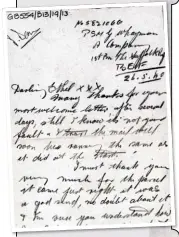 GB554/B13/19/13
Pte G Wragman
A Company
1st Bn The Suffolk Regt
B.E.F.
26.3.40
Darling Ethel x x x
Many thanks for your
most welcome letter after several
days, still I know its not your
fault & I trust the mail will
soon be running the same as
it did at the start.
I must thank you
very much for the parcel
it came just right it was
a god send, no doubt about it
& I'm sure you understand how